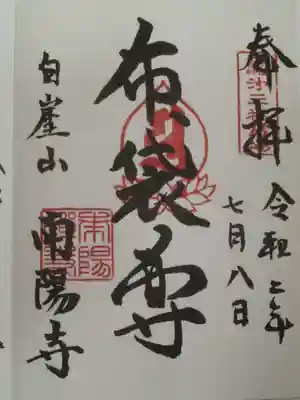 奉拝
令和二年
七月八日
布袋尊
白崖山
南陽寺